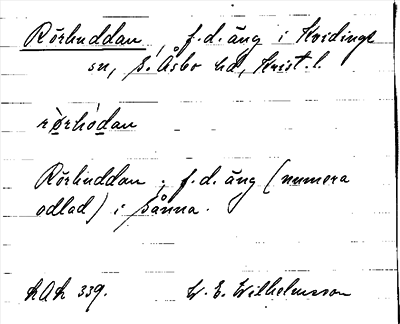 Rörhuddan, f.d. äng i Kvidinge
sn, S. Åsbo hd, Krist. l.
rö̀rhódan
Rörhuddan. f.d. äng (numera
odlad) i Sånna.
KAK 339. W. E. Wilhelmsson